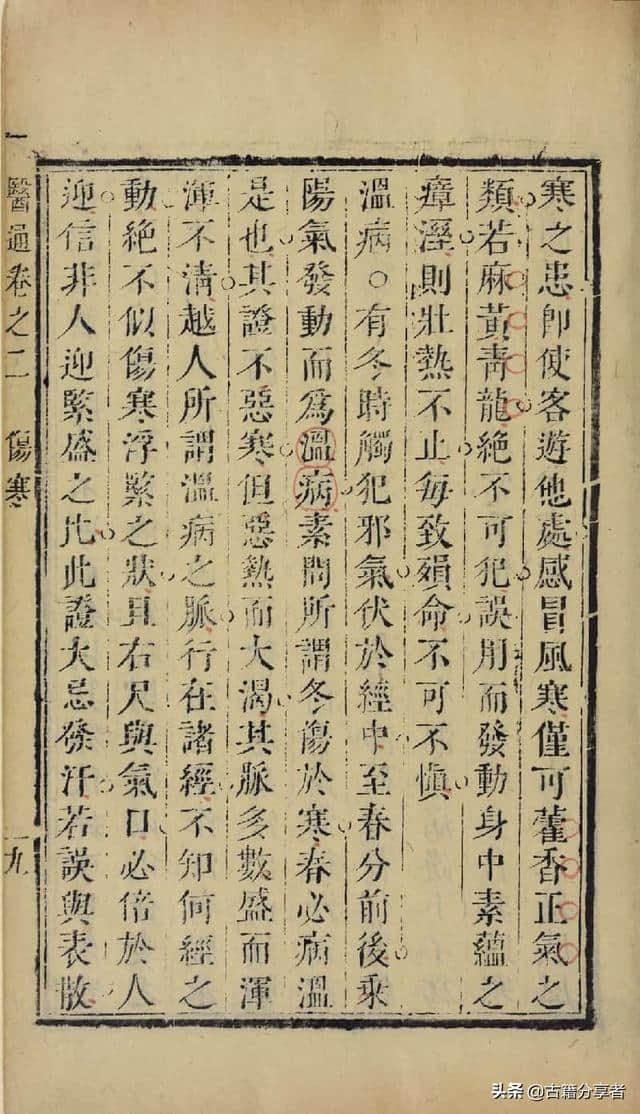 寒之患卽使客遊他處感冒風寒僅可藿香正氣之
類若麻黃靑龍絕不可犯誤用而發動身中素蘊之
瘴溼則壯熱不止每致殞命不可不愼
溫病○有冬時觸犯邪氣伏於經中至春分前後乘
陽氣發動而爲溫病素問所謂冬傷於寒春必病溫
是也其證不惡寒但惡熱而大渴其脈多數盛而渾
渾不淸越人所謂溫病之脈行在諸經不知何經之
動絕不似傷寒浮緊之狀且右尺與氣口必倍於人
迎信非人迎緊盛之比此證大忌發汗若誤與表散
醫通卷之二 傷寒 一九
头条 @古籍分享者